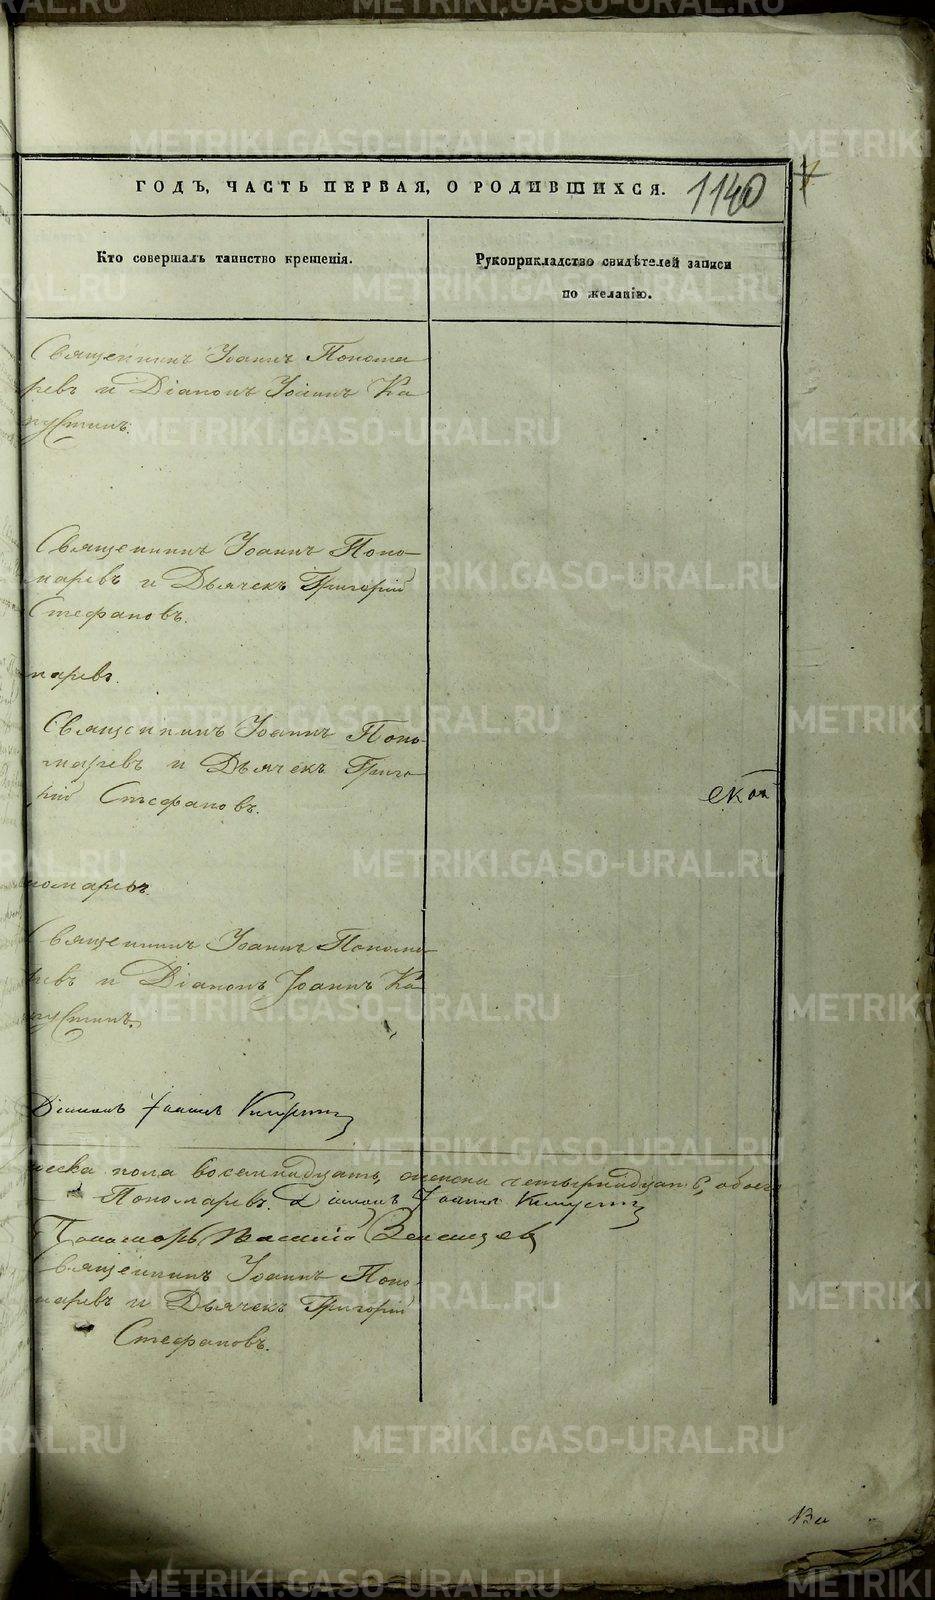 ГОДЪ, ЧАСТЬ ПЕРВАЯ, О РОДИВШИХСЯ. 1140
Кто совершалъ таинство крещенія.
Рукоприкладство свидѣтелей записи
по желанію.
Священникъ Іоаннъ Понома
ревъ и Діаконъ Іоаннъ Ка
пустинъ.
Священникъ Іоаннъ Поно-
маревъ и Дьячекъ Григорій
Стефановъ.
маревъ.
Священникъ Іоаннъ Поно-
маревъ и Дьячекъ Григо
рій Стефановъ.
ской
номаревъ.
Священникъ Іоаннъ Понома
ревъ и Діаконъ Іоаннъ Ка
пустинъ.
Діаконъ Іоаннъ Капустин
ческа пола восемнадцать, женска четырнадцать, обоего
Пономаревъ. Діаконъ Іоаннъ Капустин
Пономарь
Священникъ Іоаннъ Поно-
маревъ и Дьячекъ Григорій
Стефановъ.
METRIKI.GASO-URAL.RU